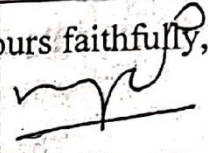 ours faithfully,